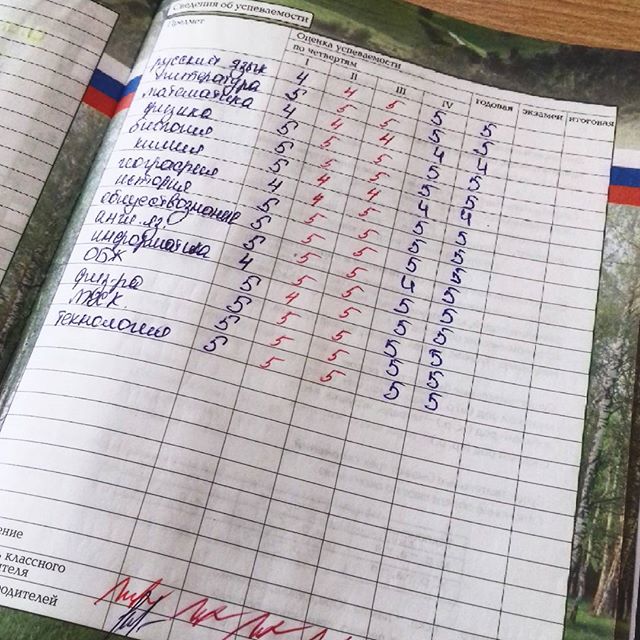 Сведения об успеваемости
Предмет
Оценка успеваемости
по четвертям
I II III IV годовая экзамен итоговая
русский язык 4 4 5 5 5
литература 5 5 5 5 5
математика 4 4 4 4 4
физика 5 5 5 5 5
биология 5 5 5 5 5
химия 5 4 4 4 4
география 4 4 5 5 5
история 5 5 5 5 5
обществознание 5 5 5 5 5
англ. яз. 5 5 5 4 5
информатика 4 5 5 5 5
ОБЖ 5 4 5 5 5
физ-ра 5 5 5 5 5
МХК 5 5 5 5 5
технология 5 5 5 5 5
ение
классного
ителя
родителей